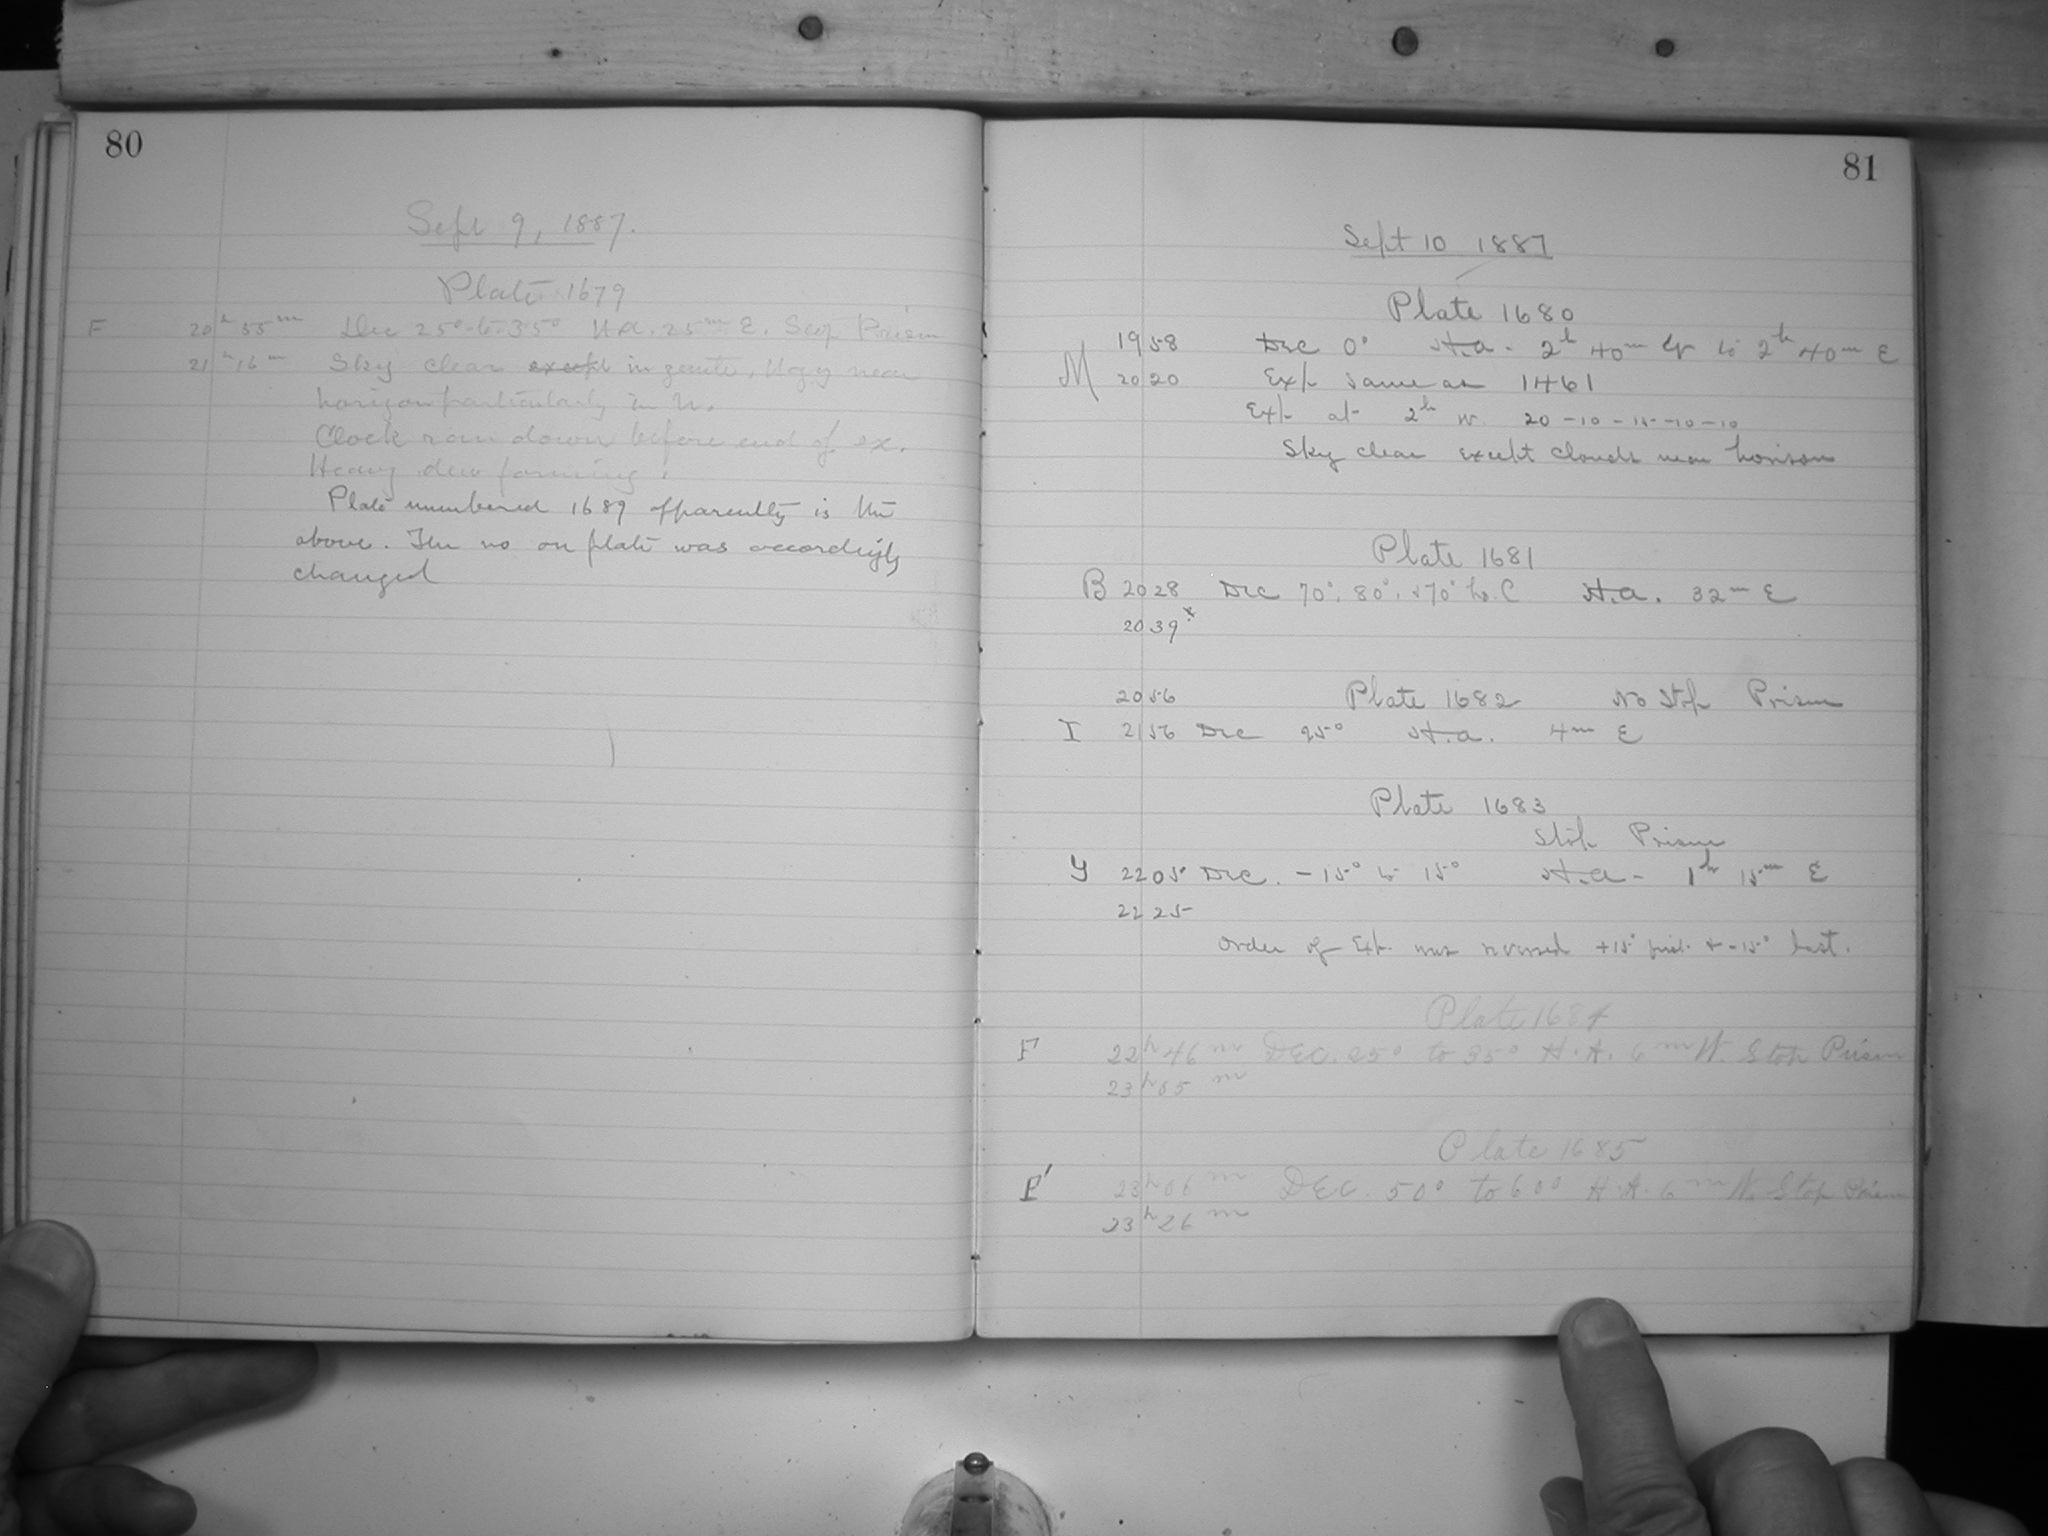 80
Sept 9, 1887.
Plate 1679
F 20h 55m Dec 25° to 35° H.A. 25m E. Stop Prism
21h 16m Sky clear except in zenith, Hazy near
horizon particularly in N.
Clock ran down before end of ex.
Heavy dew forming.
Plate numbered 1689 apparently is the
above. The no on plate was accordingly
changed
81
Sept 10 1887
Plate 1680
M 19 58 Dec 0° H.a. 2h 40m W to 2h 40m E
20 20 Exp same as 1461
Exp at 2h W. 20-10-15-10-10
Sky clear except clouds near horizon
Plate 1681
B 20 28 Dec 70°, 80°, +70° L.C H.a. 32m E
20 39 x
20 56 Plate 1682 No Stop Prism
I 21 56 Dec 25° H.a. 4m E
Plate 1683
Stop Prism
Y 22 05 Dec. -15° to 15° H.a. 1h 15m E
22 25
Order of Exp. was reversed +15° first & -15° last.
Plate 1684
F 22h 46m DEC. 25° to 35° H.A. 6m W. Stop Prism
23h 05m
Plate 1685
F' 23h 06m DEC. 50° to 60° H.A. 6m W. Stop Prism
23h 26m